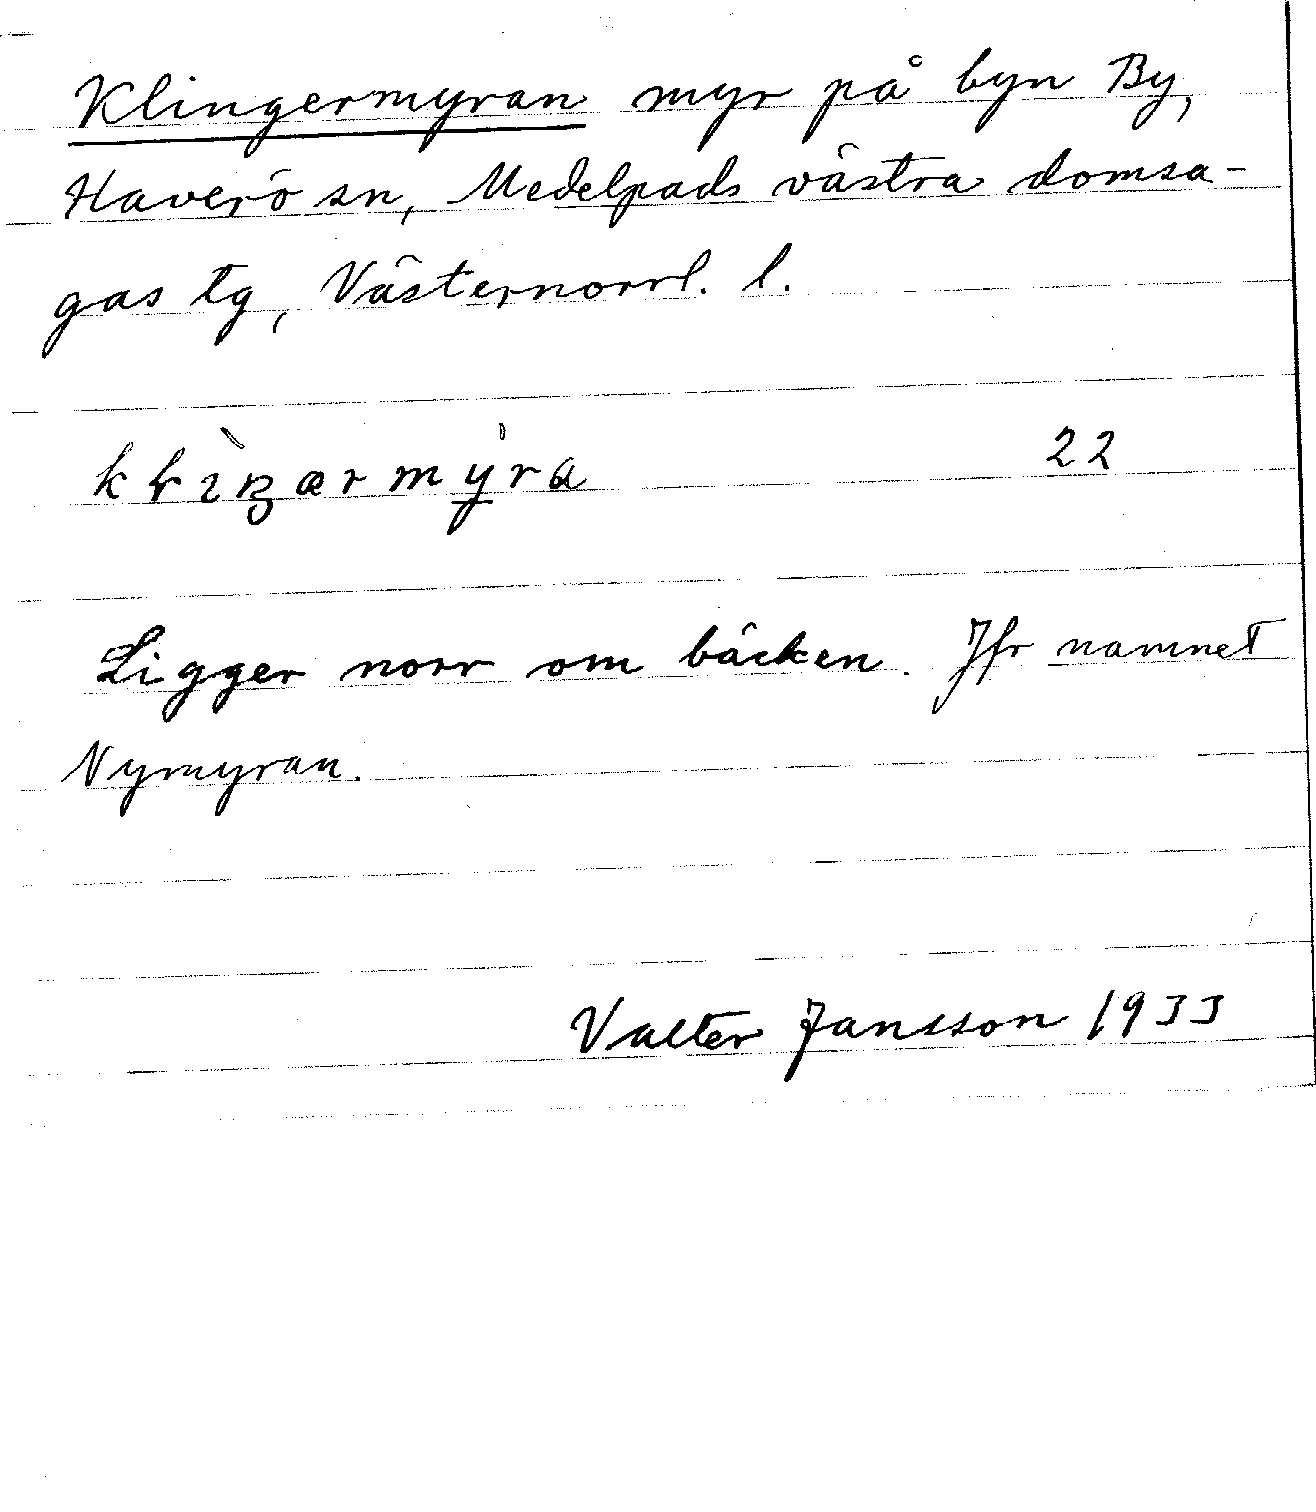 Klingermyran myr på byn By,
Haverö sn, Medelpads västra domsa-
gas tg, Västernorrl. l.
22
Ligger norr om bäcken. Jfr namnet
Nymyran.
Valter Jansson 1933